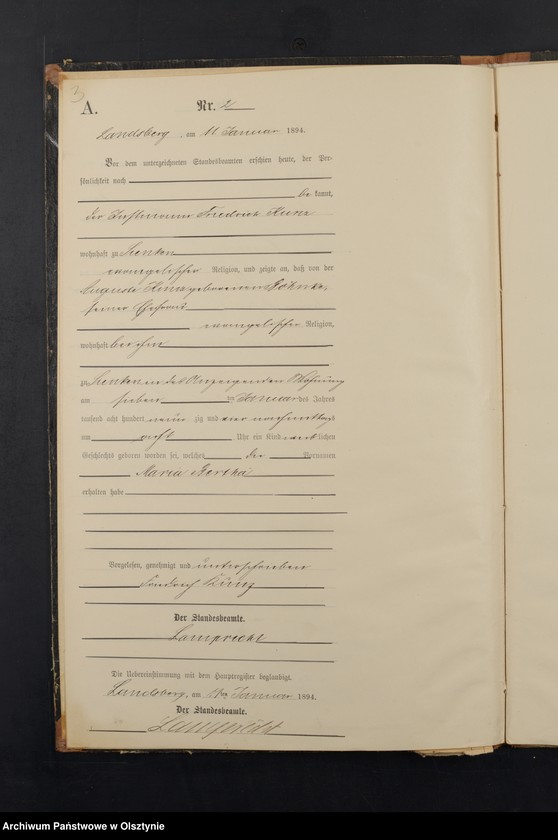 3
A.
Nr. 2
Landsberg, am 11 Januar 1894.
Vor dem unterzeichneten Standesbeamten erschien heute, der Per-
sönlichkeit nach
bekannt,
der Instmann Friedrich Kunz
wohnhaft zu
evangelischer Religion, und zeigte an, daß von der
Auguste Kunz geborenen
seiner Ehefrau
evangelischer Religion,
wohnhaft bei ihm
zu in des Anzeigenden Wohnung
am sieben ten Januar des Jahres
tausend acht hundert neun zig und vier nachmittags
um acht Uhr ein Kind weiblichen
Geschlechts geboren worden sei, welches die Vornamen
Maria Bertha
erhalten habe
Vorgelesen, genehmigt und unterschrieben
Friedrich Kunz
Der Standesbeamte.
Lamprecht
Die Uebereinstimmung mit dem Hauptregister beglaubigt.
Landsberg, am 11ten Januar 1894.
Der Standesbeamte.
Lamprecht
Archiwum Państwowe w Olsztynie